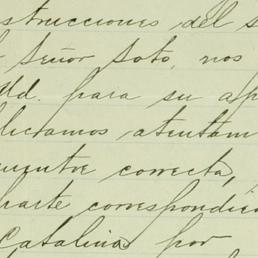 strucciones del s
Señor Soto, nos
Ud. para su ap
licitamos atentam
uentre correcta,
parte correspondie
Catalina por